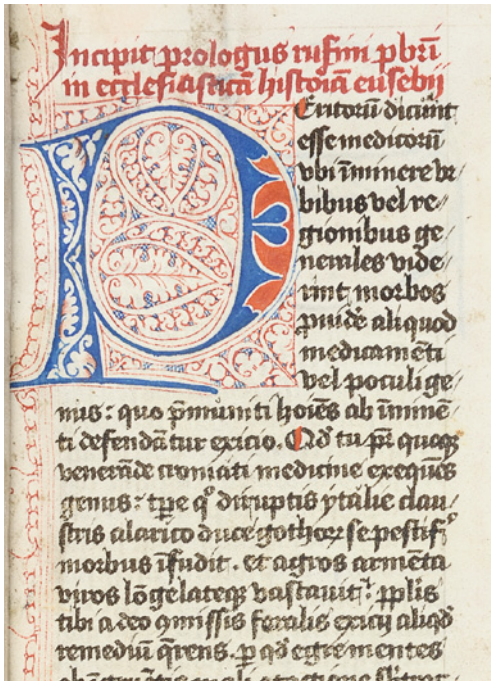 Incipit prologus rufini pbri
in ecclesiasticā historiā eusebij
Peritorū dicūnt
esse medicorū
vbi īminere vr
bibus vel re
gionibus ge
nerales vide
rint morbos
puidē aliquod
medicamēti
vel poculi ge
nus: quo pmuniti hoīes ab immē
ti defendātur exicio. Qd tu pr quoqȝ
venerāde cromati medicine exequēs
genus: tpe qo diruptis ytalie clau
stris alarico duce gothoꝝ se pestifꝰ
morbus īfudit. et agros armēta
viros lōge lateqȝ vastauit: pplis
tibi a deo ꝯmissis feralis exicij aliqd
remediū qrens. p qd egre mentes